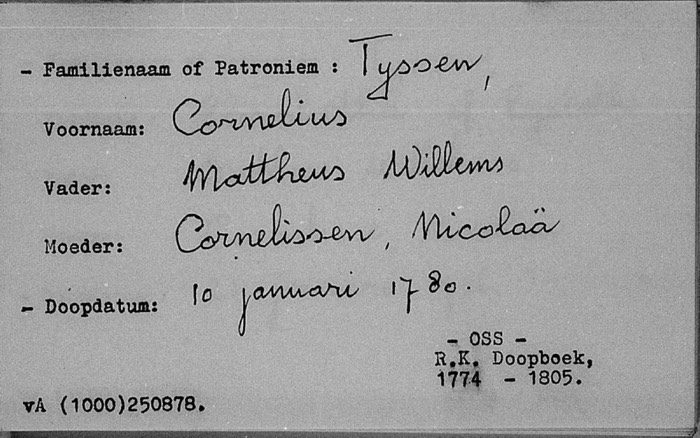 - Familienaam of Patroniem : Tyssen,
Voornaam: Cornelius
Vader: Mattheus Willems
Moeder: Cornelissen, Nicolaä
- Doopdatum: 10 januari 1780.
- OSS -
R.K. Doopboek,
1774 - 1805.
vA (1000)250878.